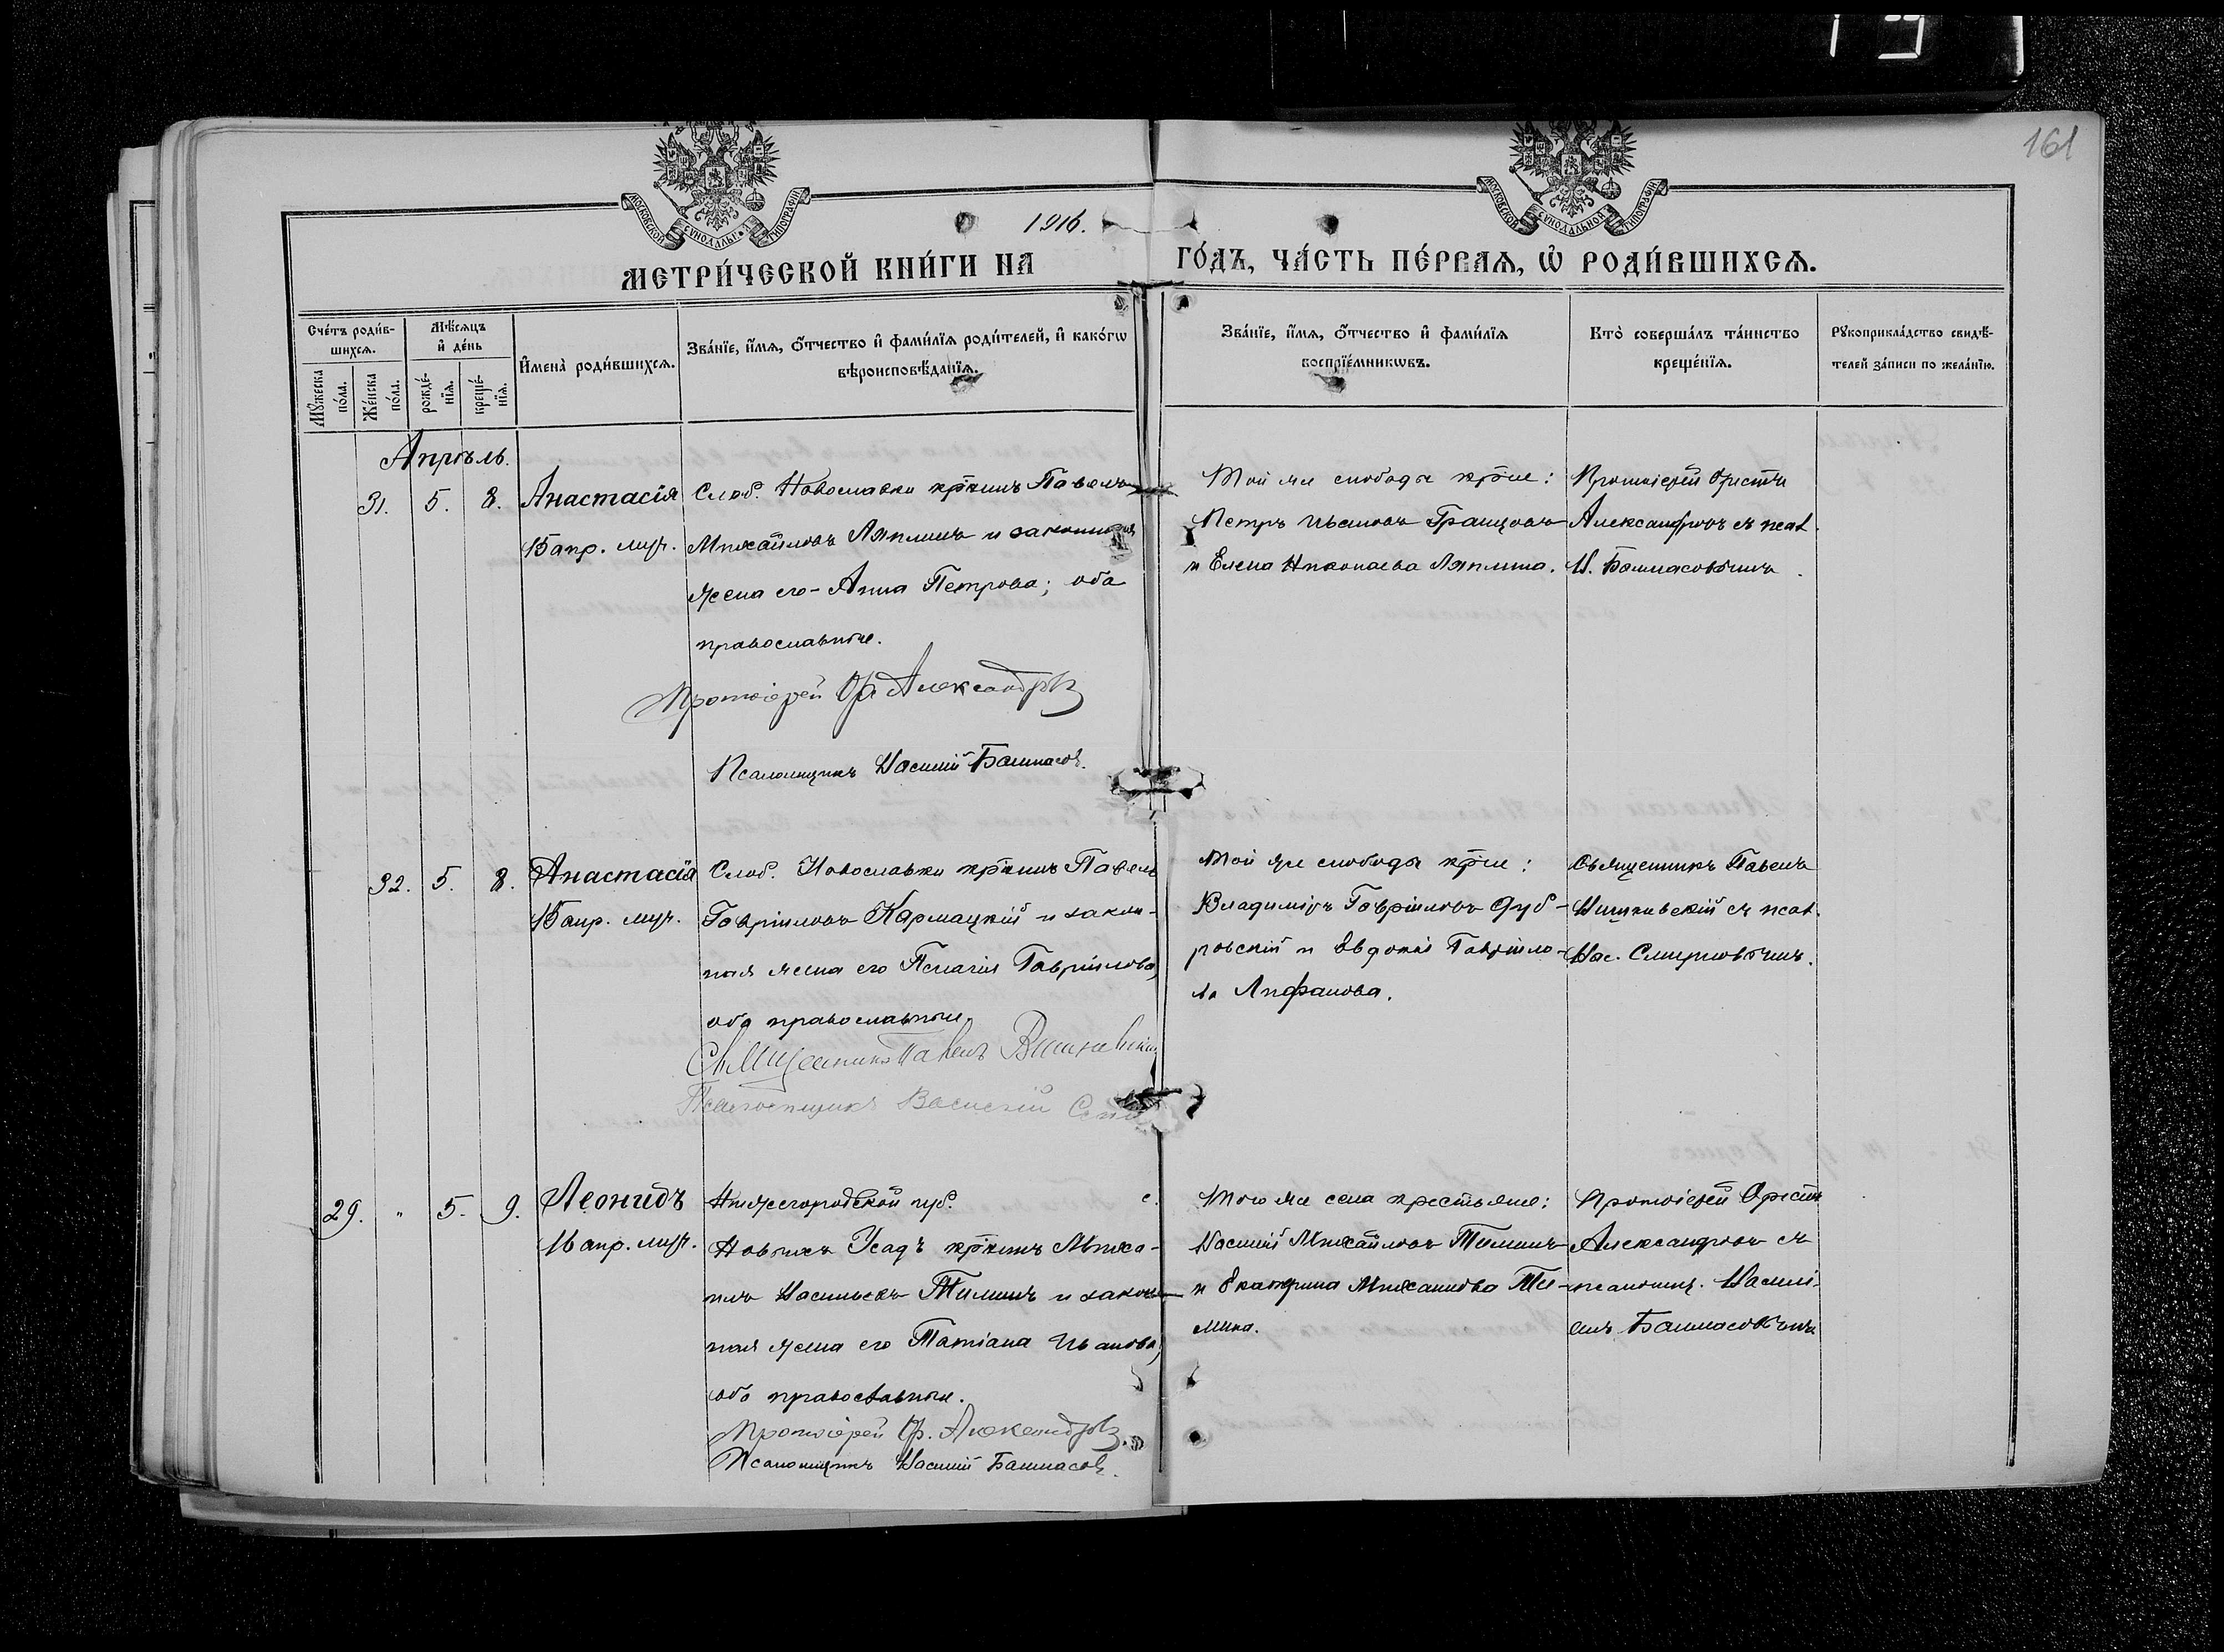 161
МОСКОВСКОЙ СѴНОДАЛЬН ТИПОГРАФІИ
МОСКОВСКОЙ СѴНОДАЛЬНОЙ ТИПОГРАФІИ
1916.
МЕТРИ́ЧЕСКОЙ КНИ́ГИ НА ГО́ДЪ, ЧА́СТЬ ПЕ́РВАЯ, Ѡ҆ РОДИ́ВШИХСЯ.
Сче́тъ роди́в-
шихся.
Мѣ́сяцъ
и҆ де́нь
Мꙋ́жеска
по́ла.
Же́нска
по́ла.
рожде́-
нїя.
креще́-
нїя.
И҆мена̀ роди́вшихся.
Зва́нїе, и҆́мя, ѻ҆́тчество и҆ фами́лїя роди́телей, и҆ како́гѡ
вѣроисповѣ́данїя.
Зва́нїе, и҆́мя, ѻ҆́тчество и҆ фами́лїя
воспрїе́мникѡвъ.
Кто̀ соверша́лъ та́инство
креще́нїя.
Рꙋкоприкла́дство свидѣ́-
телей за́писи по жела́нїю.
Апрѣль.
31. 5. 8. Анастасія
15 апр. муч.
Слоб. Новославки кр–нинъ Павелъ
Михайловъ Ляпинъ и законная
жена его – Анна Петрова; оба
православные.
Протоіерей Ор Александровъ
Псаломщикъ Василій Башмасовъ.
Той же слободы кр–не:
Петръ Ивановъ
и Елена Николаева Ляпина.
Протоіерей Орестъ
Александровъ съ псал.
В. Башмасовымъ.
32. 5. 8. Анастасія
15 апр. муч.
Слоб. Новославки кр–нинъ Павелъ
Гавріиловъ Кармацкій и закон-
ная жена его Пелагія Гавріилова,
оба православные.
Священникъ Павелъ Вишневскій
Псаломщикъ Василій
Той же слободы кр–не:
Владиміръ Гавріиловъ Дуб-
ровскій и Евдокія Гавріило-
ва Анфанова.
Священникъ Павелъ
Вишневскій съ псал.
Вас. Смирновымъ.
29. " 5. 9. Леонидъ
16 апр. муч.
Нижегородской губ. с.
Новыхъ Усадъ кр–нинъ Миха-
илъ Васильевъ Тиминъ и закон-
ная жена его Татіана Иванова,
оба православные.
Протоіерей Ор. Александровъ.
Псаломщикъ Василій Башмасовъ.
Того же села крестьяне:
Василій Михайловъ Тиминъ
и Екатерина Михаилова Ти-
мина.
Протоіерей Орестъ
Александровъ съ
псаломщ. Василі-
емъ Башмасовымъ